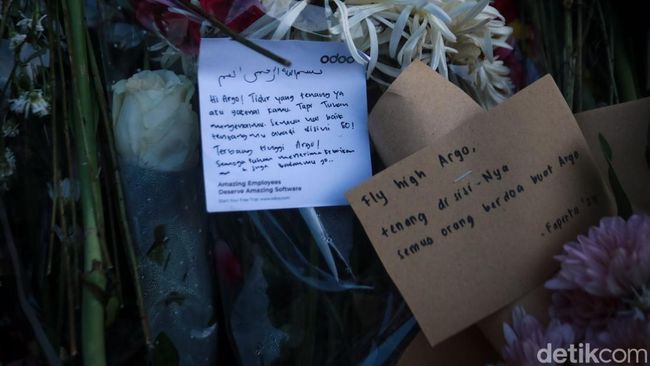 odoo
بسم الله الرحمن الرحيم
Hi Argo! Tidur yang tenang ya
aku gakenal kamu. Tapi Tuhan
mengenalmu. Semua hal baik
tentangmu abadi disini
Terbang tinggi Argo!
Semoga tuhan menerima kebaikan
Amazing Employees
Deserve Amazing Software
Fly high Argo,
tenang di sisi-Nya
semua orang berdoa buat Argo
- Faperta '24
detikcom